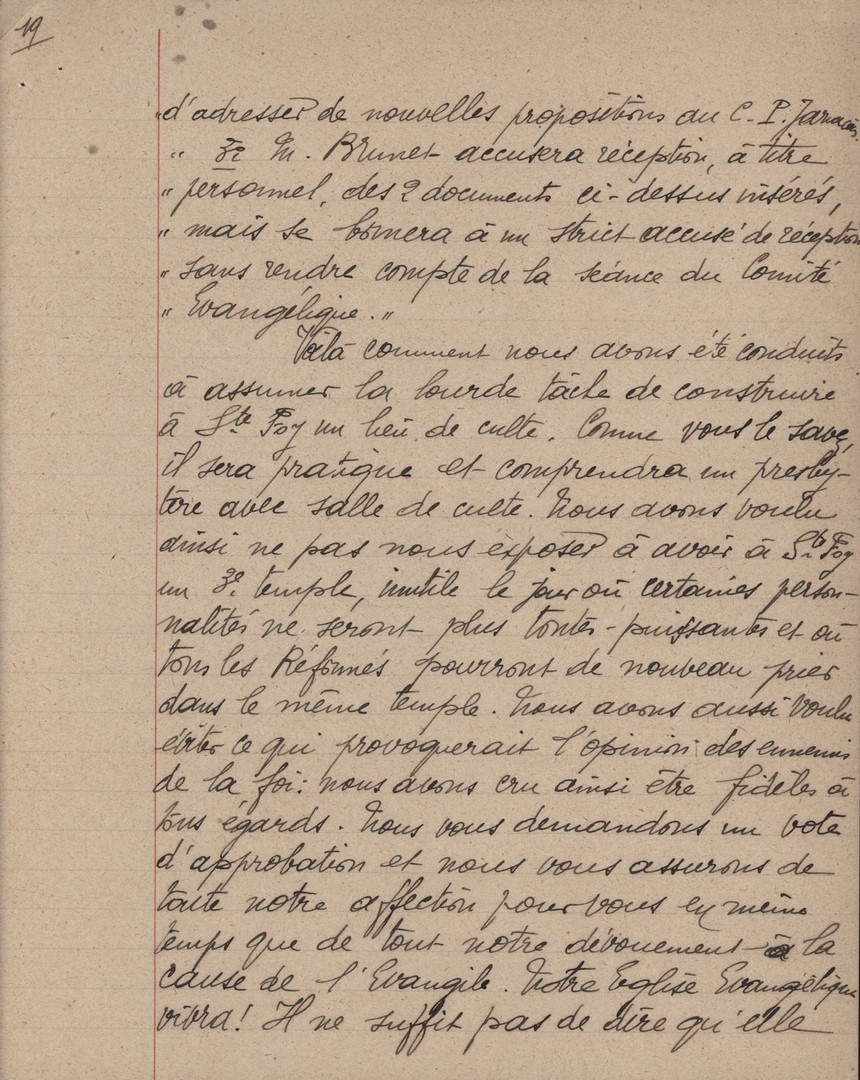 19
"d'adresser de nouvelles propositions au C. P. Jarnac.
" 3e M. Brunet accusera réception, à titre
" personnel, des 2 documents ci-dessus insérés,
" mais se bornera à un strict accusé de réception
" sans rendre compte de la séance du Comité
" Evangélique."
Voilà comment nous avons été conduits
à assumer la lourde tâche de construire
à Ste Foy un lieu de culte. Comme vous le savez,
il sera pratique et comprendra un presby-
tère avec salle de culte. Nous avons voulu
ainsi ne pas nous exposer à avoir à Ste Foy
un 3e temple, inutile le jour où certaines person-
nalités ne seront plus toutes-puissantes et où
tous les Réformés pourront de nouveau prier
dans le même temple. Nous avons aussi voulu
éviter ce qui provoquerait l'opinion des ennemis
de la foi: nous avons cru ainsi être fidèles à
tous égards. Nous vous demandons un vote
d'approbation et nous vous assurons de
toute notre affection pour vous en même
temps que de tout notre dévouement à la
cause de l'Evangile. Notre Eglise Evangélique
vivra! Il ne suffit pas de dire qu'elle